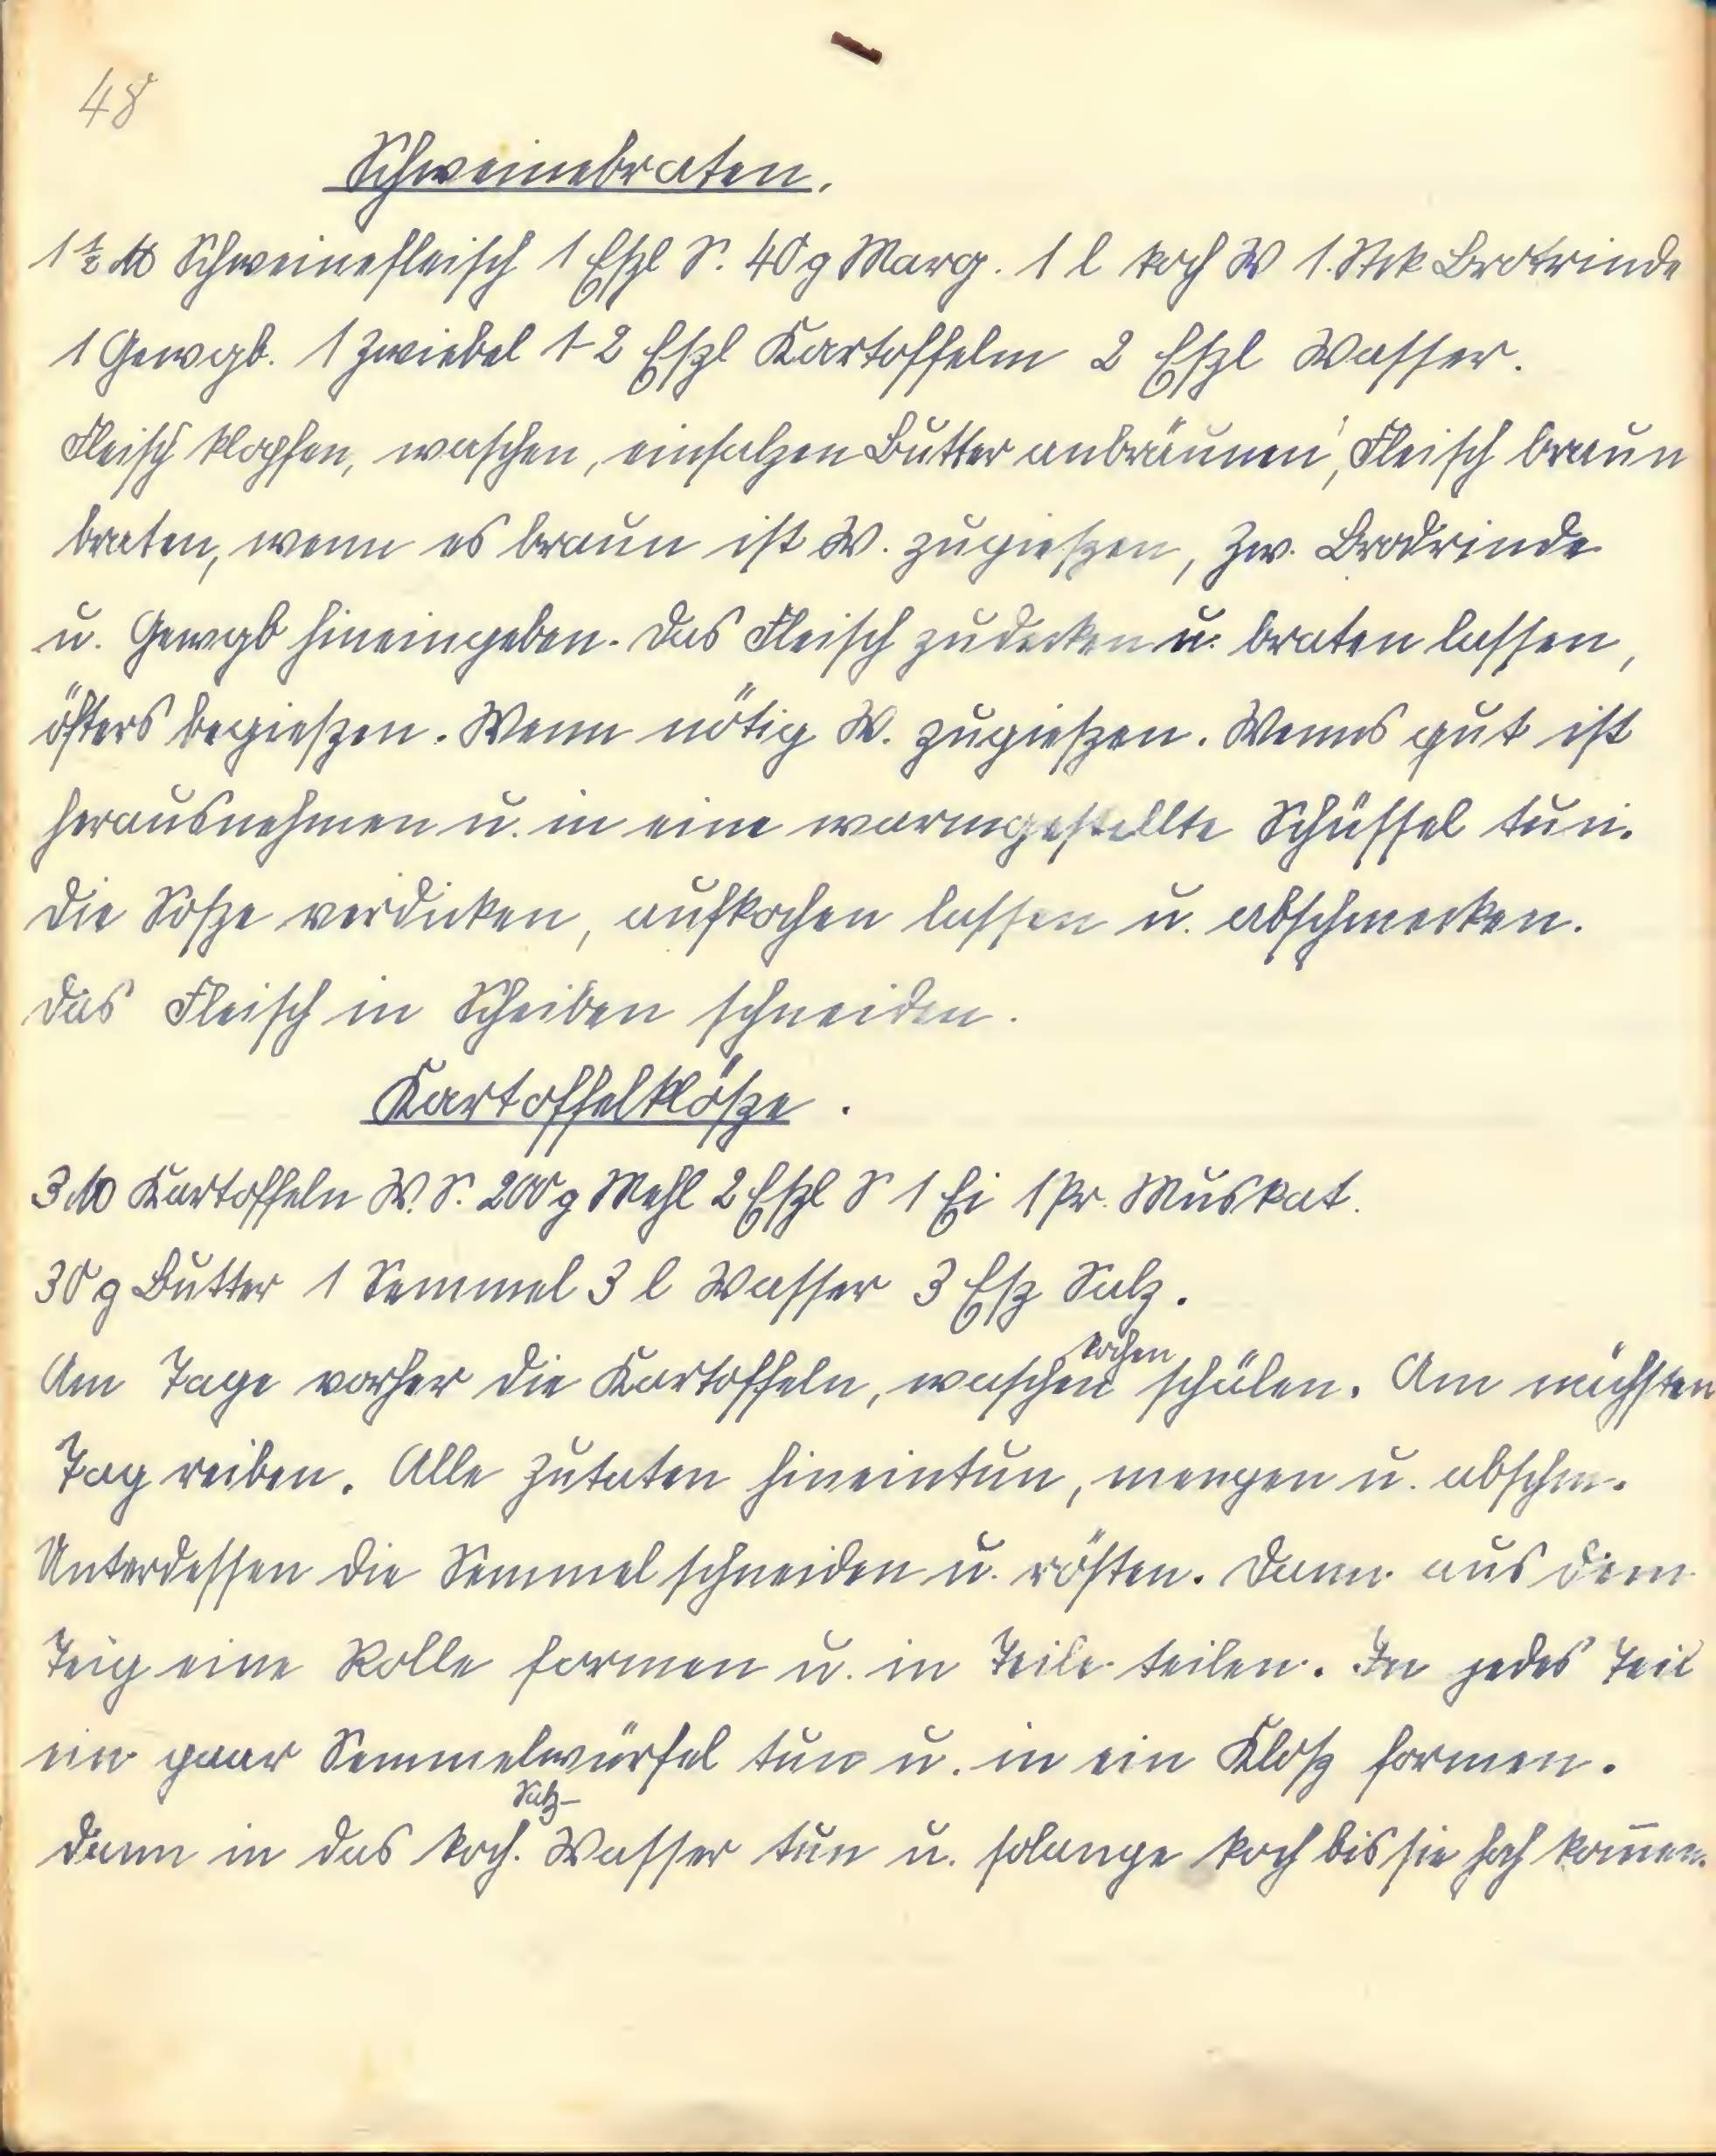 48
Schweinebraten.
1 ½ ℔ Schweinefleisch 1 Eßl S. 40 g Marg. 1 l koch W 1. Stck Brotrinde
1 Gewgb. 1 Zwiebel 1-2 Eßl Kartoffelm 2 Eßl Wasser.
Fleisch klopfen, waschen, einsalzen Butter anbräunen, Fleisch braun
braten, wenn es braun ist W. zugießen, Zw. Brodrinde
u. Gewgb hineingeben. Das Fleisch zudecken u. braten lassen,
öfters begießen. Wenn nötig W. zugießen. Wenns gut ist
herausnehmen u. in eine warmgestellte Schüssel tun.
Die Soße verdicken, aufkochen lassen u. abschmecken.
Das Fleisch in Scheiben schneiden.
Kartoffelklöße.
3 ℔ Kartoffeln W. S. 200 g Mehl 2 Eßl S 1 Ei 1 Pr. Muskat.
30 g Butter 1 Semmel 3 l Wasser 3 Eß Salz.
kochen
Am Tage vorher die Kartoffeln, waschen schälen. Am nächsten
Tag reiben. Alle Zutaten hineintun, mengen u. abschm.
Unterdessen die Semmel schneiden u. rösten. Dann aus dem
Teig eine Rolle formen u. in Teile teilen. In jedes Teil
ein paar Semmelwürfel tun u. in ein Kloß formen.
Salz-
Dann in das koch. Wasser tun u. solange koch bis sie hoh kom̅en.